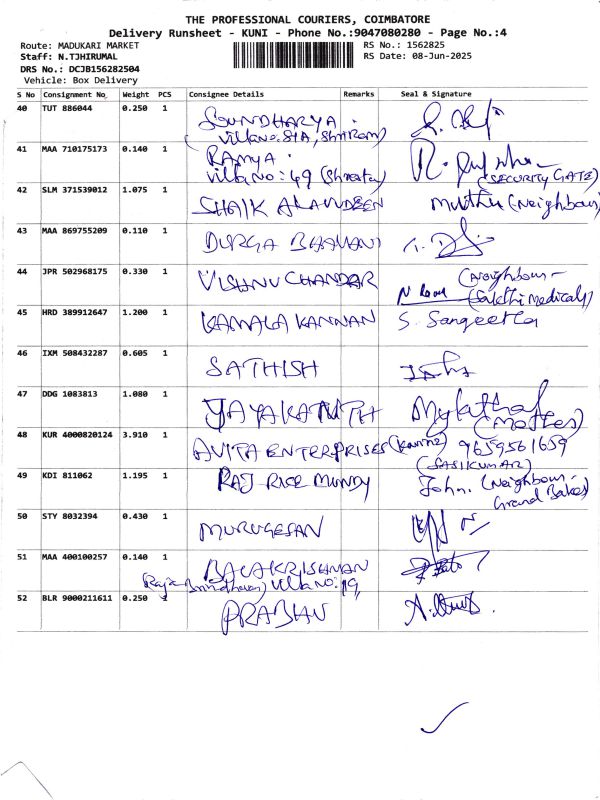 THE PROFESSIONAL COURIERS, COIMBATORE
Delivery Runsheet - KUNI - Phone No.:9047080280 - Page No.:4
Route: MADUKARI MARKET
RS No.: 1562825
Staff: N.TJHIRUMAL
RS Date: 08-Jun-2025
DRS No.: DCJB156282504
Vehicle: Box Delivery
S No Consignment No. Weight PCS Consignee Details Remarks Seal & Signature
40 TUT 886044 0.250 1 SOUNDHARYA.
Villa No: 81A, Shriram)
41 MAA 710175173 0.140 1 RAMYA.
Villa No: 49 (Shreeta) (SECURITY GATE)
42 SLM 371539012 1.075 1 SHAIK ALAUDEEN Muthu (Neighbour)
43 MAA 869755209 0.110 1 DURGA BHAVANI
44 JPR 502968175 0.330 1 VISHNU CHANDAR (Neighbour-
Sakthi Medicals)
45 HRD 389912647 1.200 1 KAMALA KANNAN S. Sangeetha
46 IXM 508432287 0.605 1 SATHISH
47 DDG 1083813 1.080 1 JAYAKANTH
48 KUR 4000820124 3.910 1 AVITA ENTERPRISES 9659561659
(SASIKUMAR)
49 KDI 811062 1.195 1 RAJ RICE MUNDY John. (Neighbour-
Grand Bakes)
50 STY 8032394 0.430 1 MURUGESAN
51 MAA 400100257 0.140 1 BALAKRISHNAN
Villa No: 19,
52 BLR 9000211611 0.250 1 PRABHU